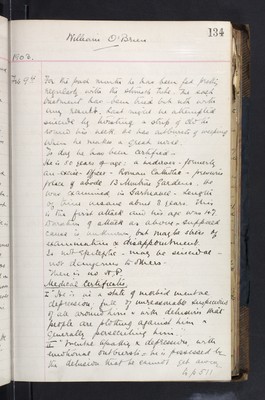 134
William O'Brien
1903.
Feb. 9th For the past months he has been fed pretty
regularly with the stomach tube. The
treatment has been tried but with
any result. Last night he attempted
suicide by twisting a strip of
round his neck. He has outbursts of weeping
when he makes a great noise.
To day he has been certified.
He is 50 years of age - a widower - formerly
an excise officer - Roman Catholic - previous
place of abode 13 Gardens. He
was examined in Sarsfield
or three about 8 years. This
is the first attack and his age was 47
duration of attack as above - supposed
cause is unknown, but maybe stress of
examination & disappointment.
Is not epileptic - may be suicidal -
not dangerous to others.
There is no H.P.
Medical Certificates
I "He is in a state of morbid mental
depression, full of unreasonable suspicions
of all around him & with delusions that
people are plotting against him &
generally persecuting him."
II "Mental apathy & depression, with
emotional outbursts - he is possessed by
the delusion that he cannot get away
to p 511